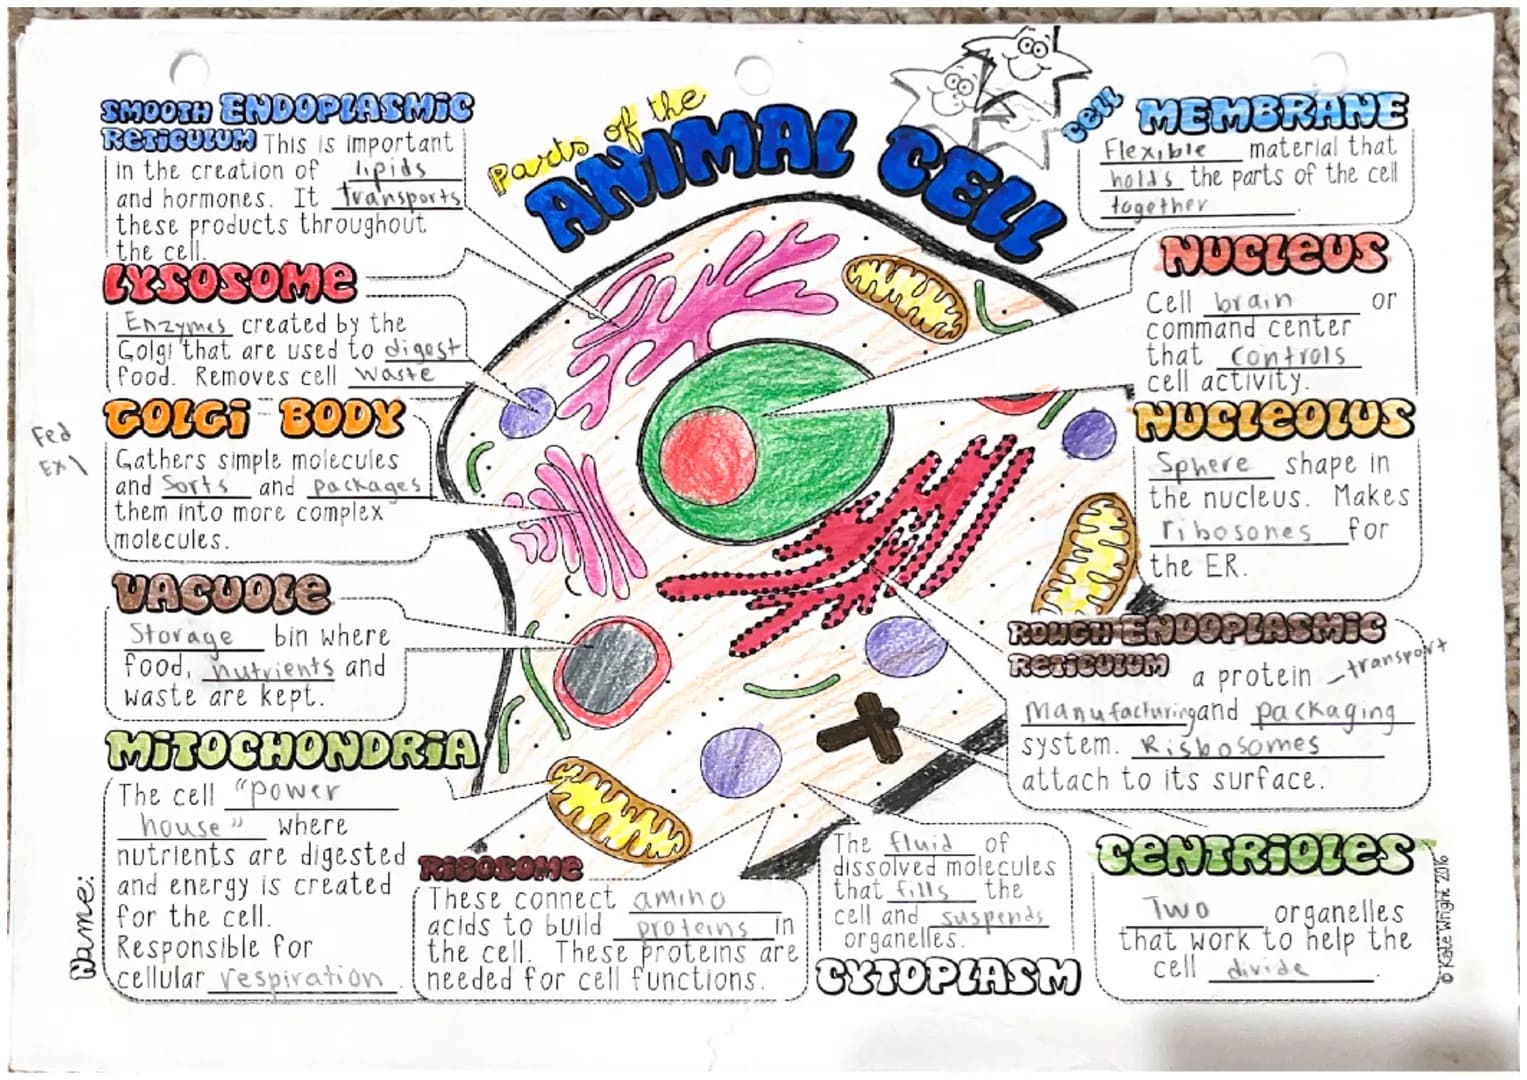 Parts of the
ANIMAL CELL
SMOOTH ENDOPLASMIC
RETICULUM This is important
in the creation of lipids
and hormones. It transports
these products throughout
the cell.
LYSOSOME
Enzymes created by the
Golgi that are used to digest
food. Removes cell waste
GOLGI BODY
Fed
Ex
Gathers simple molecules
and Sorts and packages
them into more complex
molecules.
VACUOLE
Storage bin where
food, nutrients and
waste are kept.
MITOCHONDRIA
The cell "power
house" where
nutrients are digested
and energy is created
for the cell.
Responsible for
cellular respiration
Name:
RIBOSOME
These connect amino
acids to build proteins in
the cell. These proteins are
needed for cell functions.
The fluid of
dissolved molecules
that fills the
cell and suspends
organelles.
CYTOPLASM
Cell MEMBRANE
Flexible material that
holds the parts of the cell
together.
NUCLEUS
Cell brain or
command center
that controls
cell activity.
NUCLEOLUS
Sphere shape in
the nucleus. Makes
ribosones for
the ER.
ROUGH ENDOPLASMIC
RETICULUM a protein - transport
Manufacturing and packaging
system. Risbosomes
attach to its surface.
CENTRIOLES
Two organelles
that work to help the
cell divide.
© Kate Wright 2016